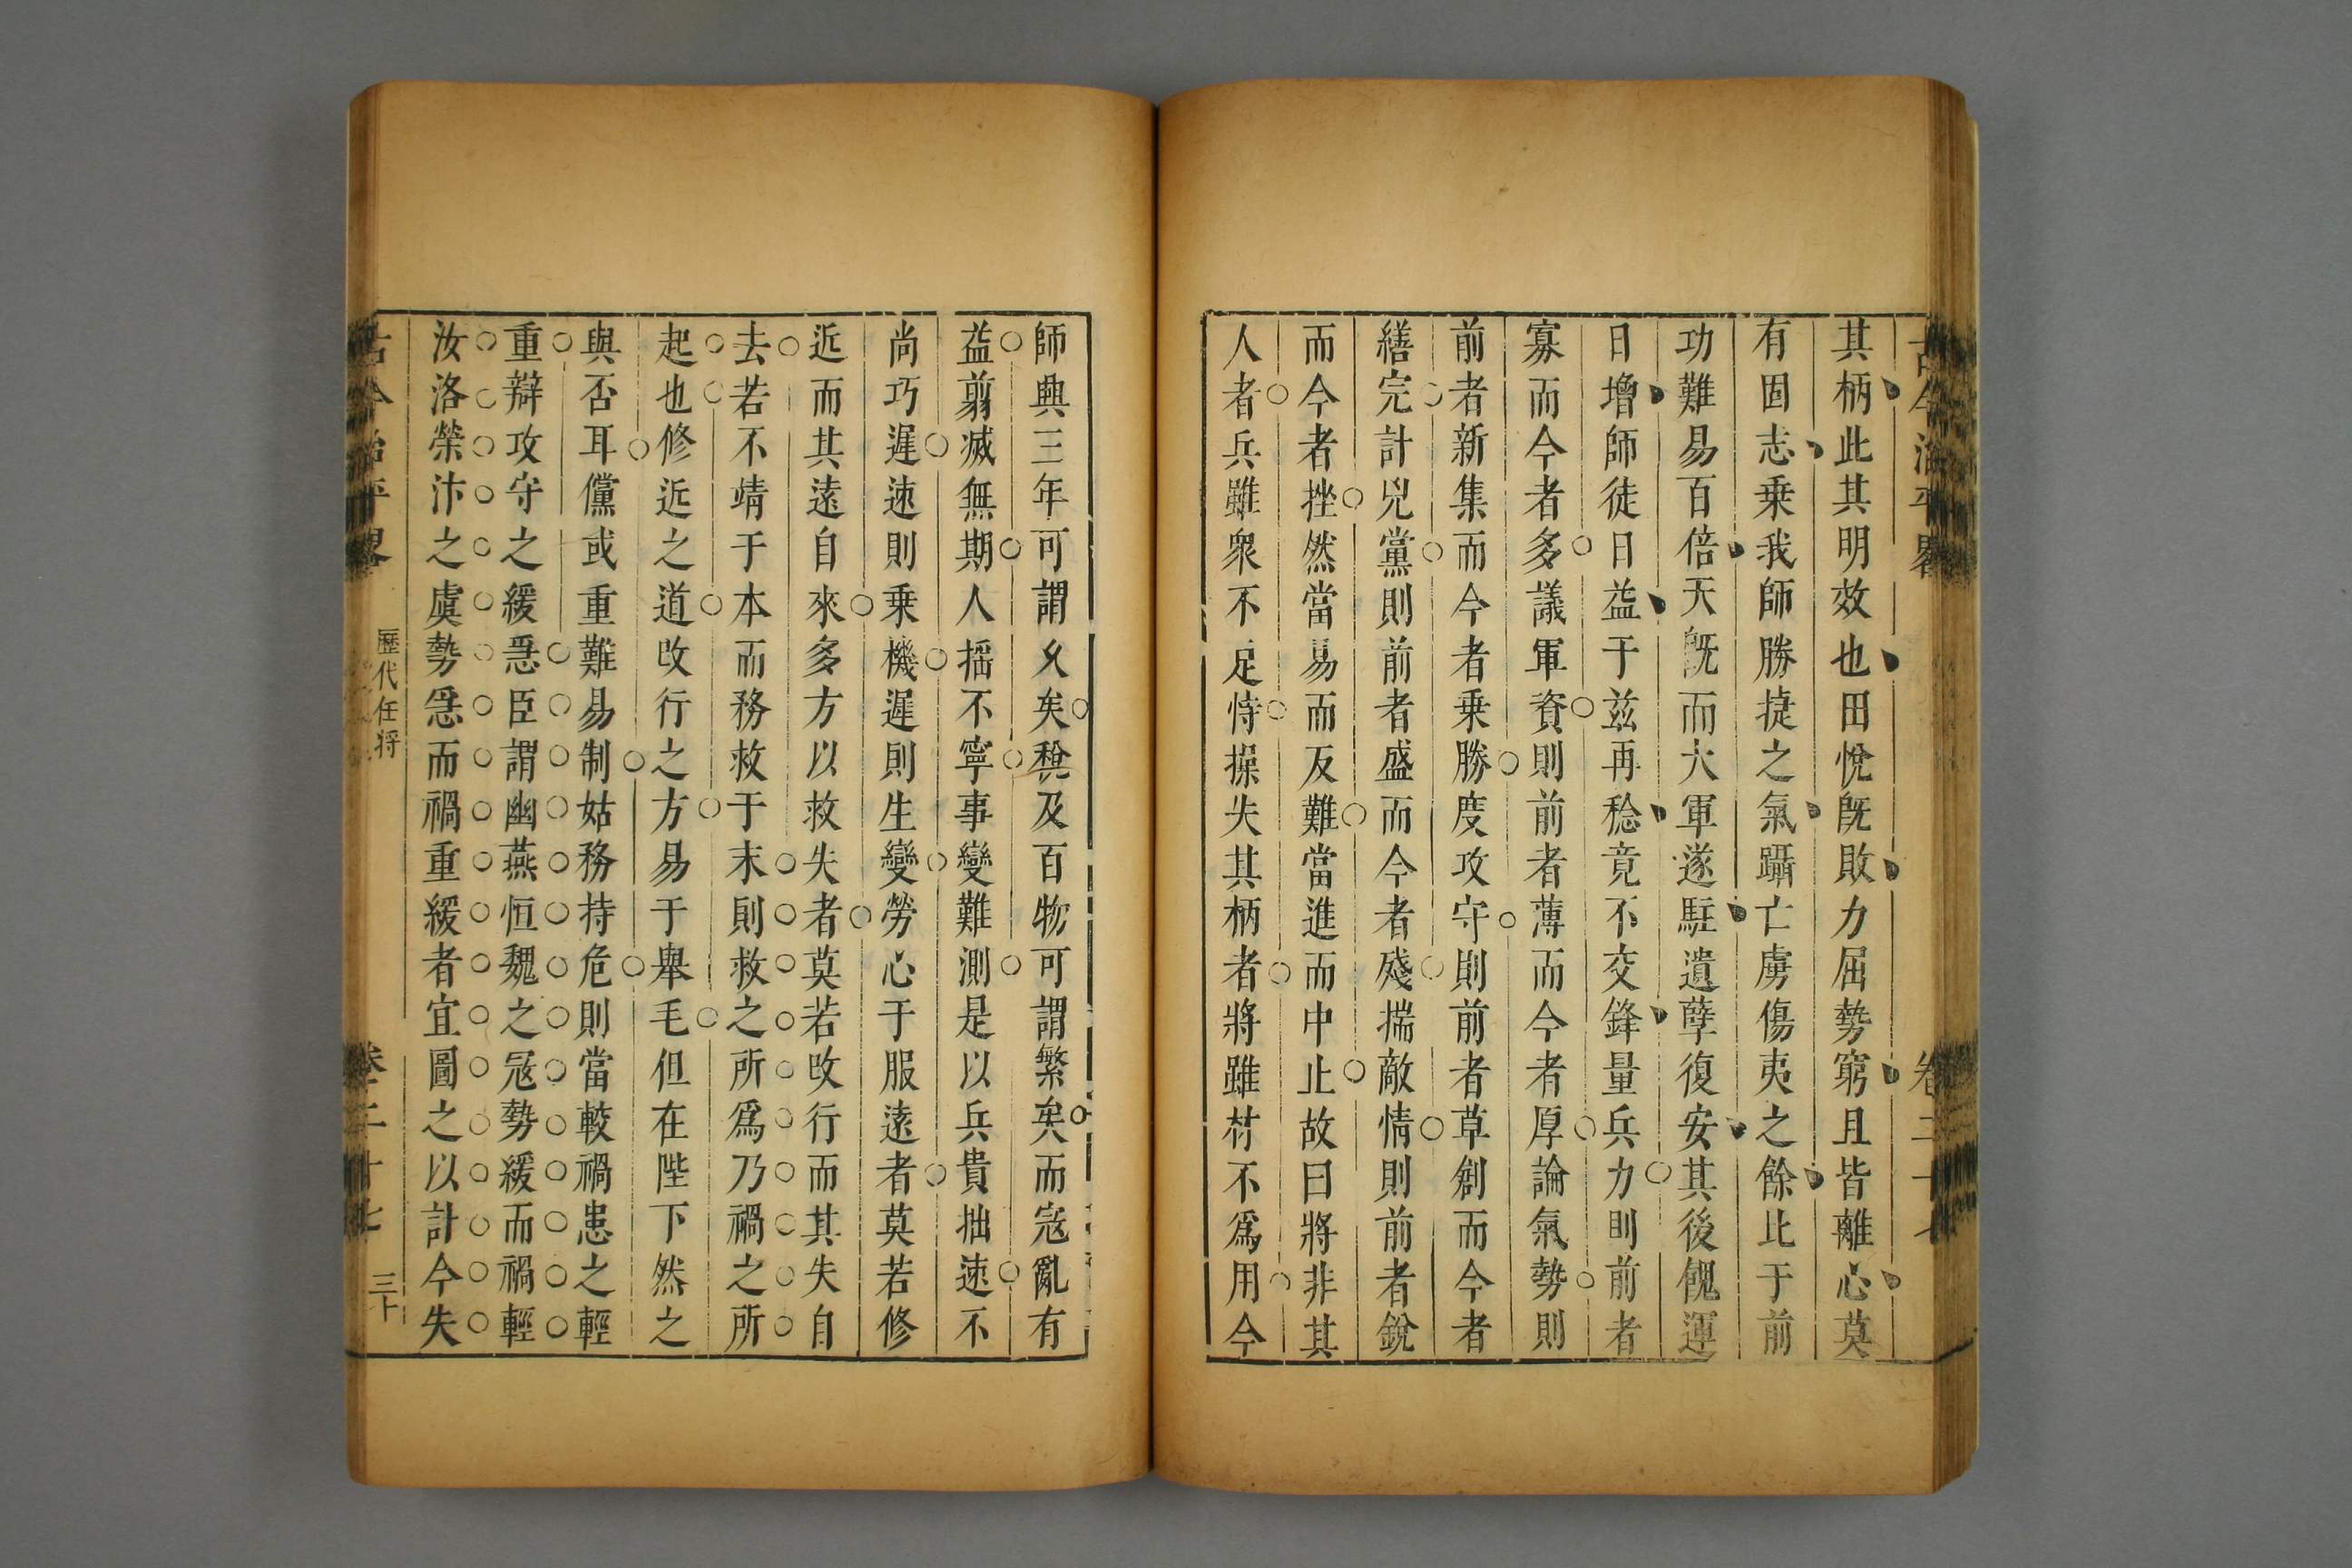 古今治平畧 卷二十七
其柄此其明效也田悅旣敗力屈勢窮且皆離心莫
有固志乗我師勝捷之氣躡亡虜傷夷之餘比于前
功難易百倍天旣而大軍遂駐遺孽復安其後餽運
日增師徒日益于兹再稔竟不交鋒量兵力則前者
寡而今者多議軍資則前者薄而今者厚論氣勢則
前者新集而今者乗勝度攻守則前者草創而今者
繕完計兇黨則前者盛而今者殘揣敵情則前者銳
而今者挫然當易而反難當進而中止故曰將非其
人者兵雖衆不足恃操失其柄者將雖材不爲用今
師興三年可謂乆矣稅及百物可謂繁矣而宼亂有
益剪滅無期人揺不寧事變難測是以兵貴拙速不
尚巧遲速則乗機遲則生變勞心于服逺者莫若修
近而其逺自來多方以救失者莫若改行而其失自
去若不靖于本而務救于末則救之所爲乃禍之所
起也修近之道改行之方易于舉毛但在陛下然之
與否耳儻或重難易制姑務持危則當較禍患之輕
重辯攻守之緩急臣謂幽燕恒魏之宼勢緩而禍輕
汝洛榮汴之虞勢急而禍重緩者宜圖之以計今失
古今治平畧 歷代任將 卷二十七 三十